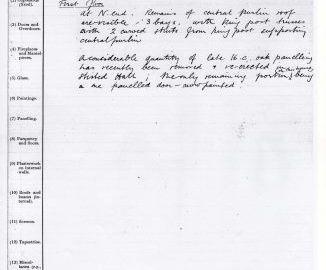 (Stair).
(3) Doors and Overdoors.
(4) Fireplaces and Mantelpieces.
(5) Glass.
(6) Paintings.
(7) Panelling.
(8) Parquetry and floors.
(9) Plasterwork on internal walls.
(10) Roofs and beams (internal).
(11) Screens.
(12) Tapestries.
First Floor
at N. end. Remains of central purlin roof
are visible : 3 bays, with king post trusses
with 2 curved struts from king post supporting
central purlin
A considerable quantity of late 16 c. oak panelling
has recently been removed & re-erected
; the only remaining portion being
a panelled door - now painted!